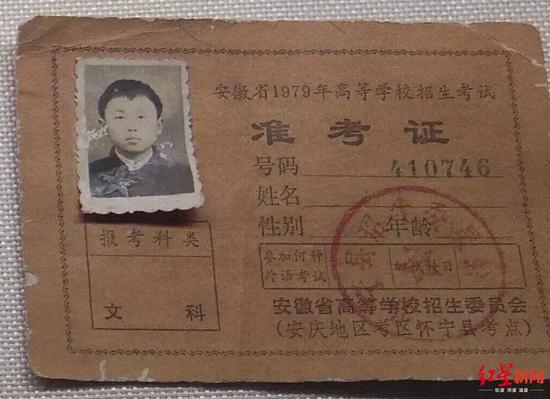 安徽省1979年高等学校招生考试
准考证
号码 410746
姓名
性别 年龄
报考科类
文科
参加何种
外语考试
安徽省高等学校招生委员会
(安庆地区考区怀宁县考点)
红星新闻